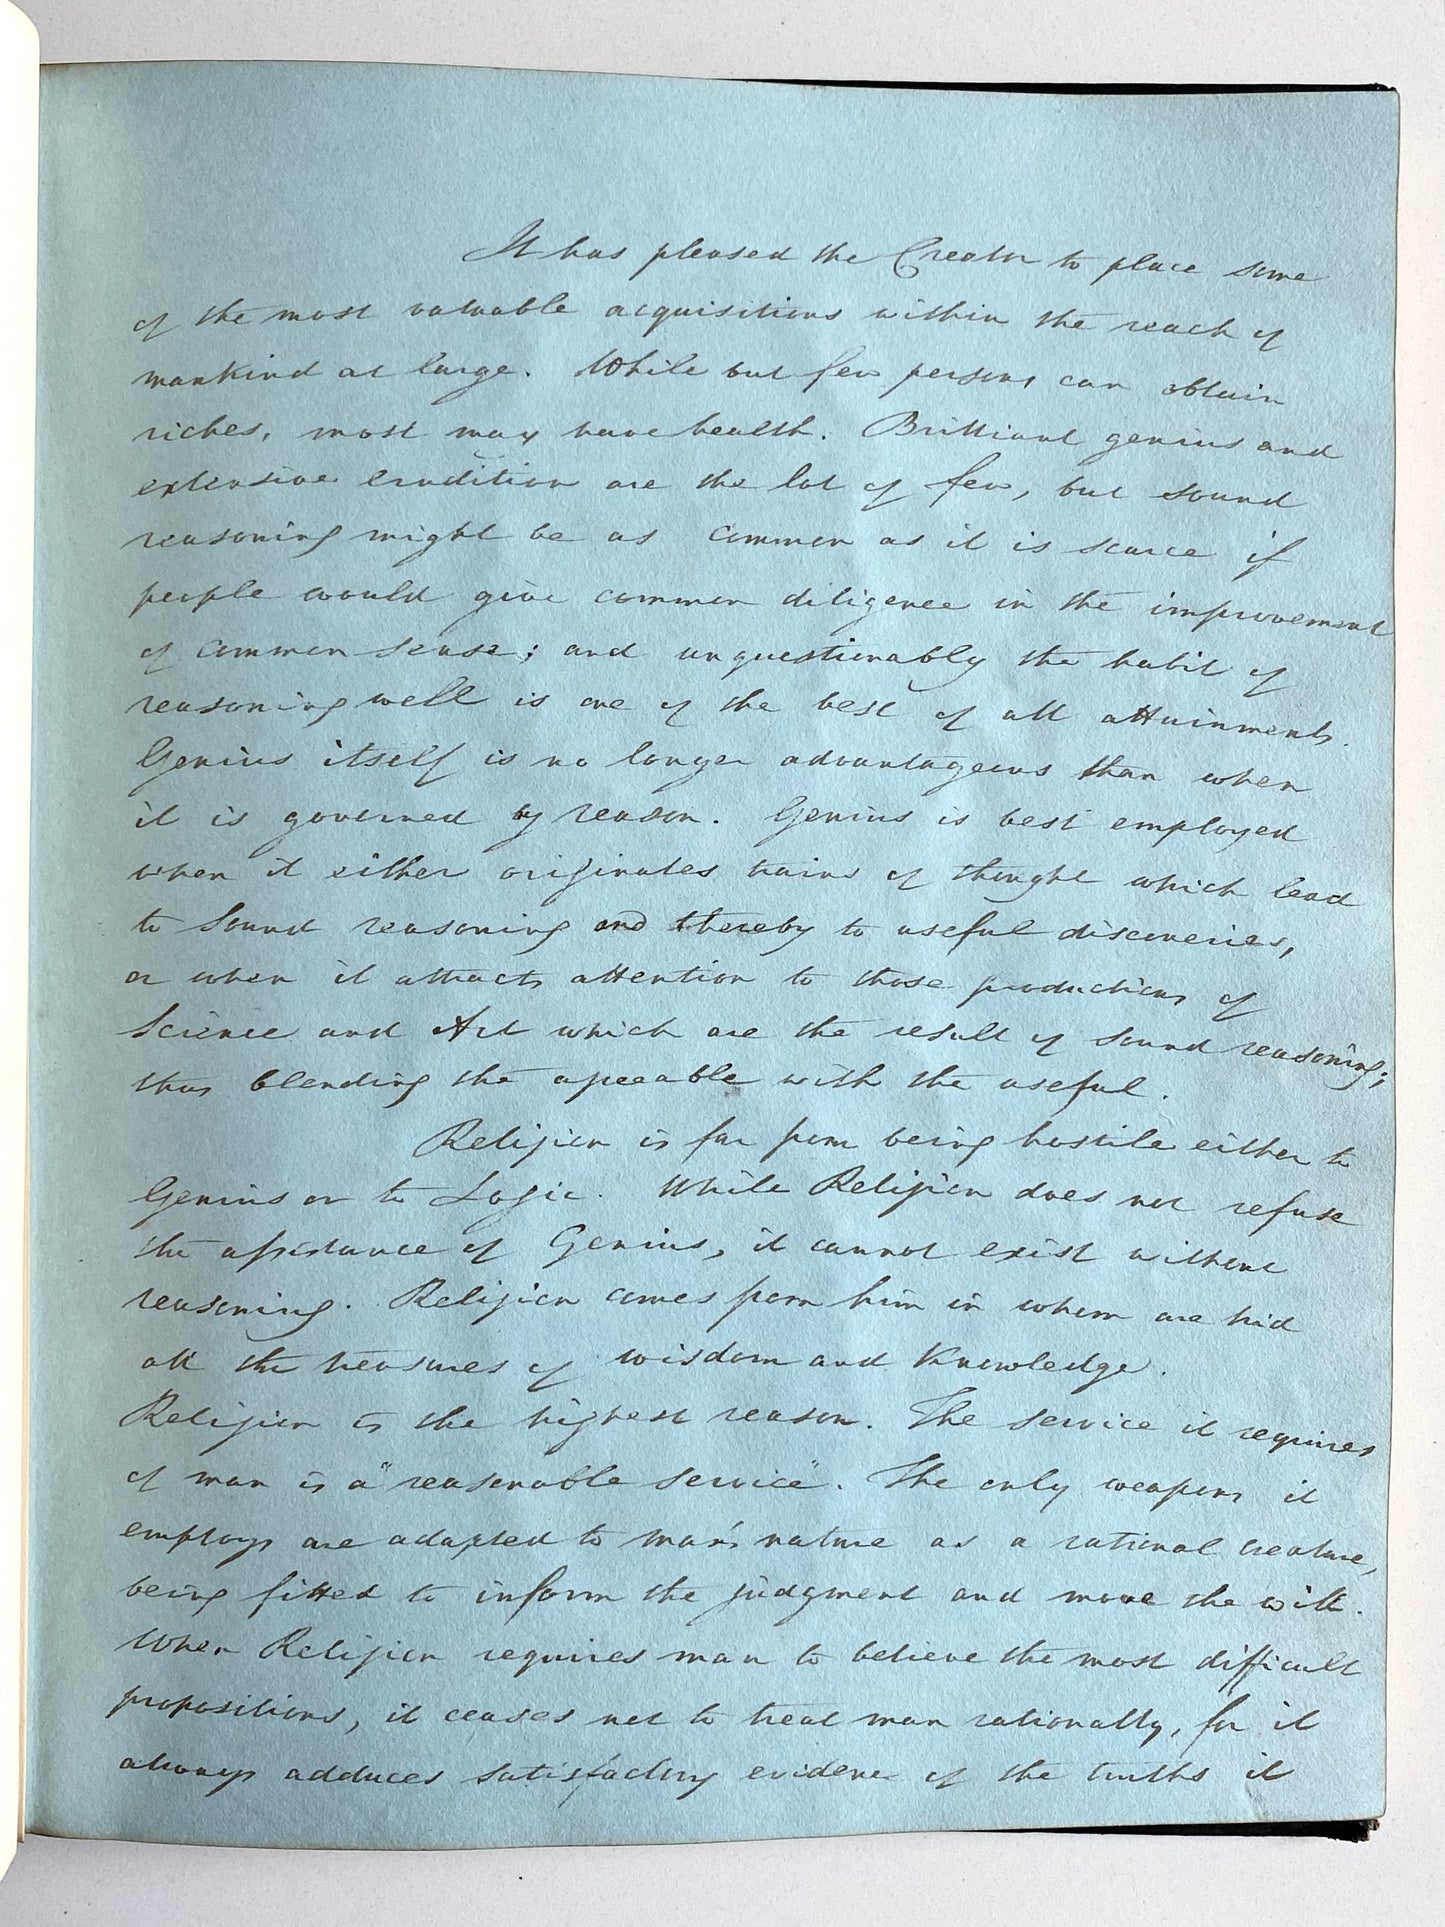 It has pleased the Creator to place some
of the most valuable acquisitions within the reach of
mankind at large. While but few persons can obtain
riches, most may have health. Brilliant genius and
extensive erudition are the lot of few, but sound
reasoning might be as common as it is scarce if
people would give common diligence in the improvement
of common sense; and unquestionably the habit of
reasoning well is one of the best of all attainments.
Genius itself is no longer advantageous than when
it is governed by reason. Genius is best employed
when it either originates trains of thought which lead
to sound reasoning and thereby to useful discoveries,
or when it attracts attention to those productions of
Science and Art which are the result of sound reasoning;
thus blending the agreeable with the useful.
Religion is far from being hostile either to
Genius or to Logic. While Religion does not refuse
the assistance of Genius, it cannot exist without
reasoning. Religion comes from him in whom are hid
all the treasures of wisdom and Knowledge.
Religion is the highest reason. The service it requires
of man is a "reasonable service". The only weapons it
employs are adapted to man's nature as a rational creature,
being fitted to inform the judgment and move the will.
When Religion requires man to believe the most difficult
propositions, it ceases not to treat man rationally, for it
always adduces satisfactory evidence of the truths it